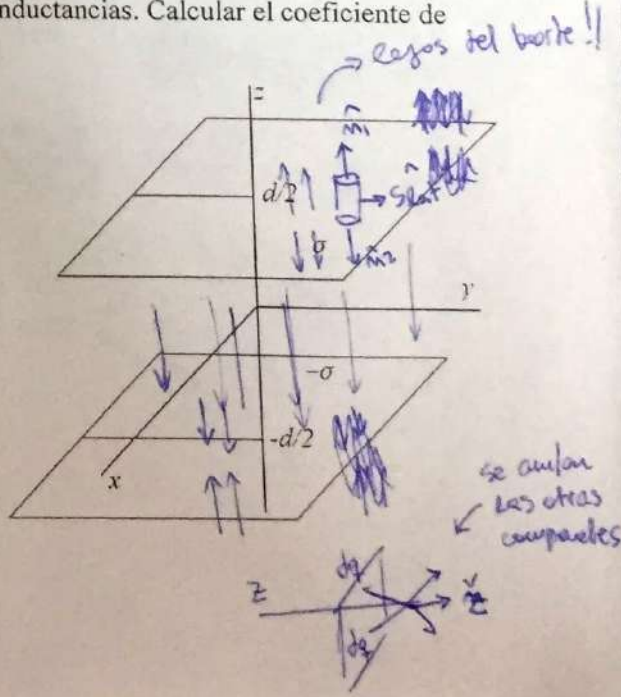 nductancias. Calcular el coeficiente de
lejos del borde!!
z
m̂1
d/2
Slat
σ
m̂2
y
-σ
-d/2
x
se anulan
las otras
componentes
dq
z
ž
dq